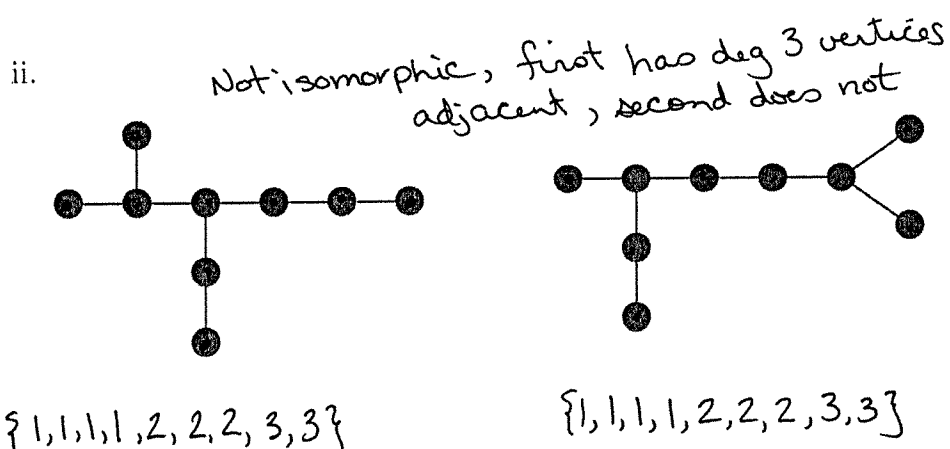 ii.
Not isomorphic, first has deg 3 vertices
adjacent, second does not
{1,1,1,1,2,2,2,3,3}
{1,1,1,1,2,2,2,3,3}